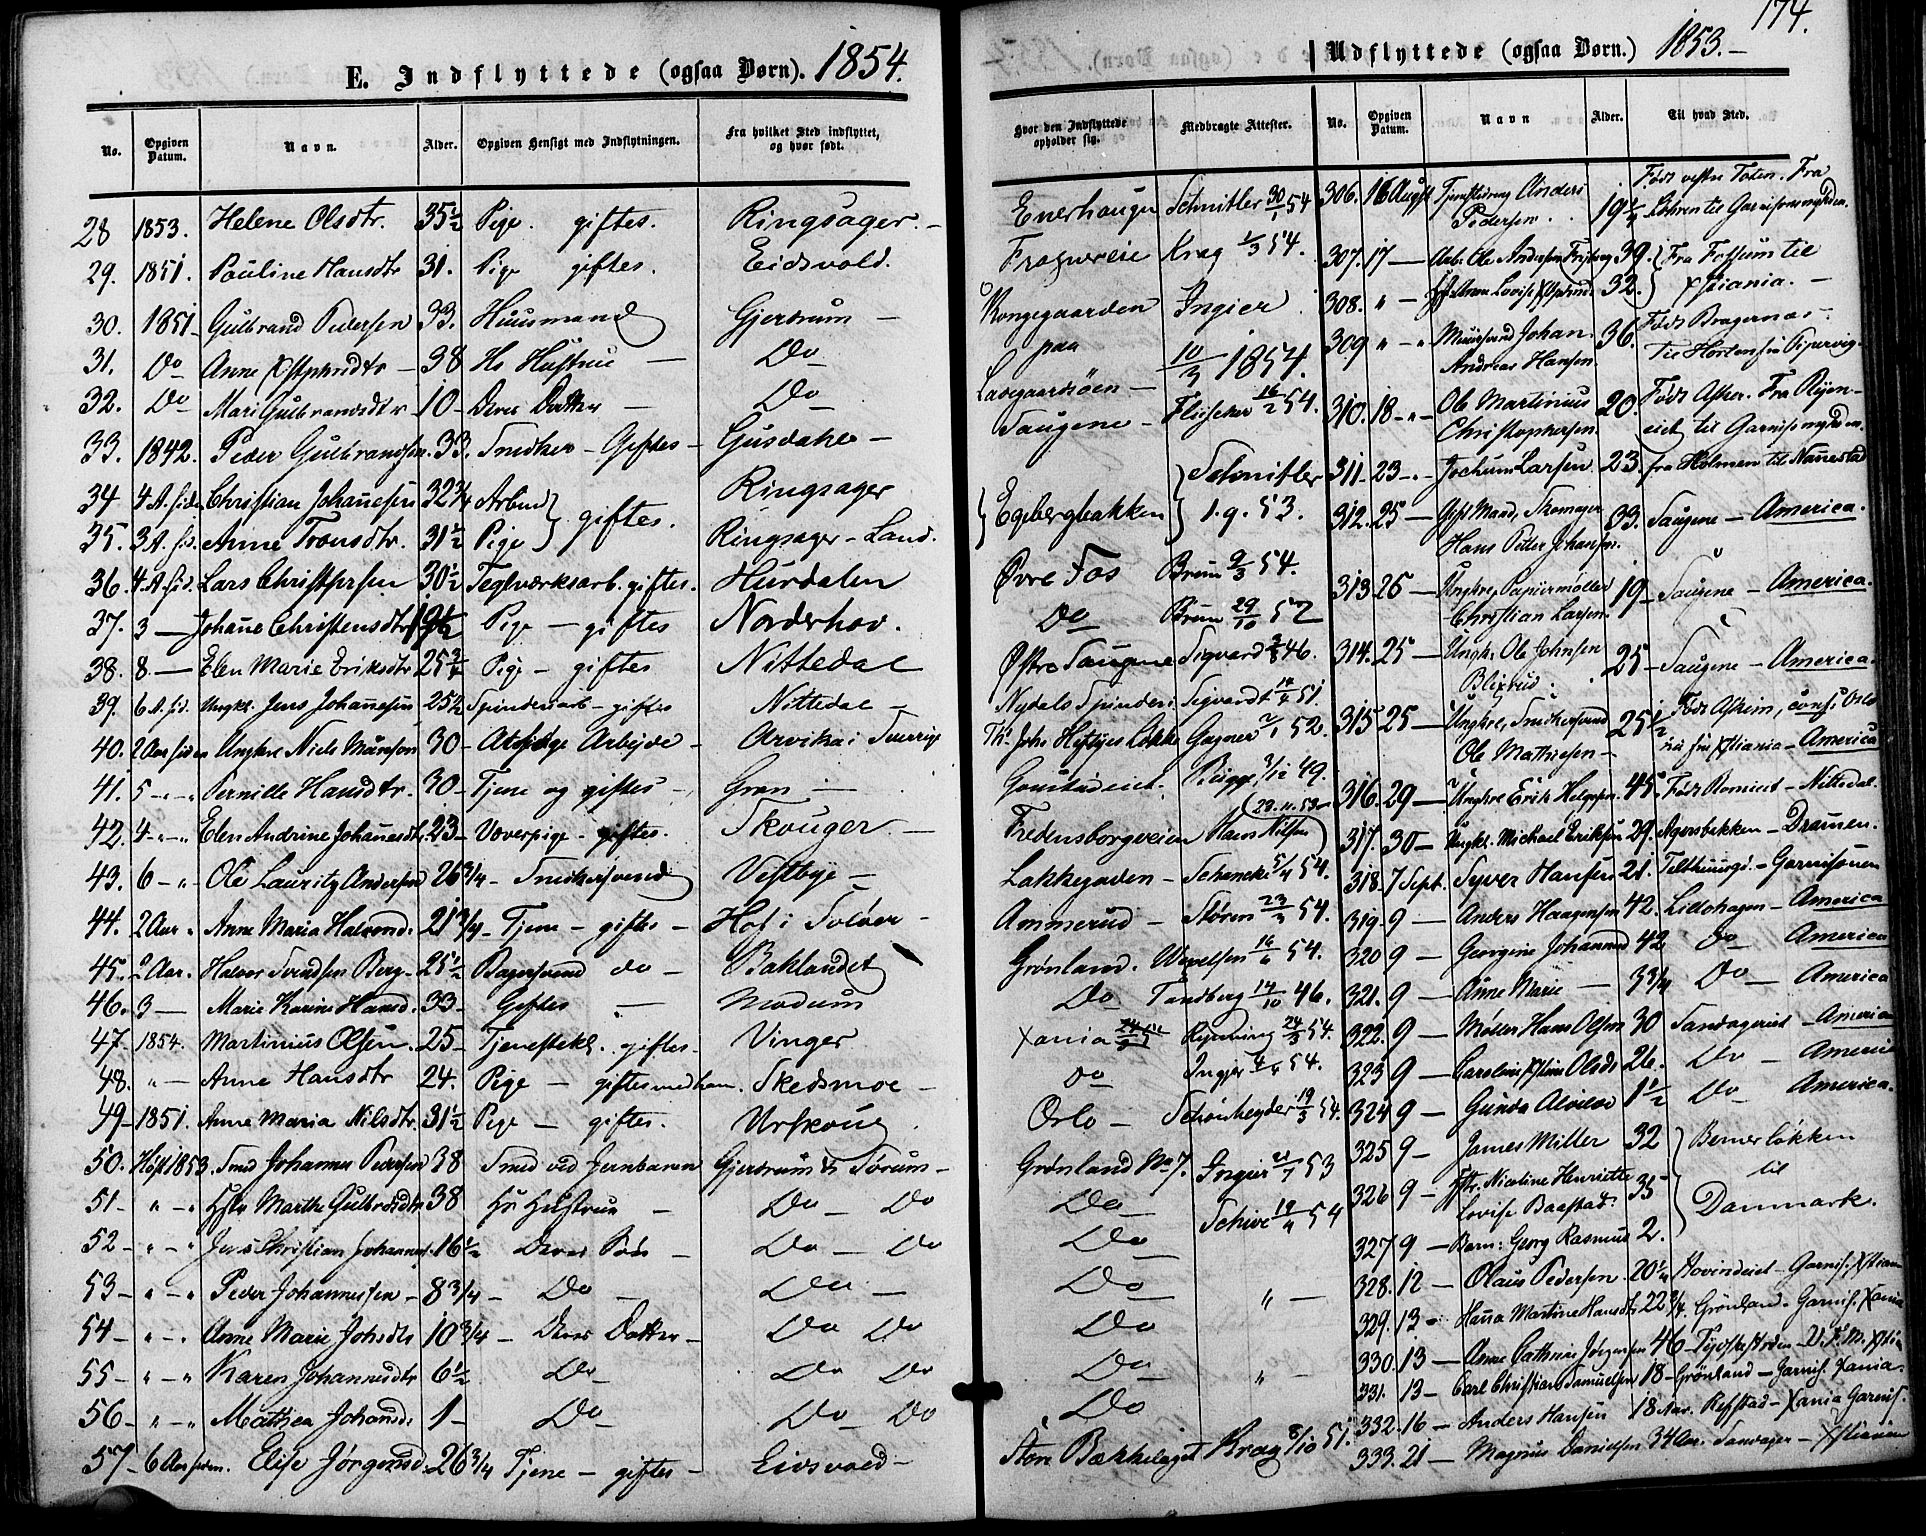 174.
E. Indflyttede (ogsaa Børn). 1854.
No. Opgiven Datum. Navn. Alder. Opgiven Hensigt med Indflytningen. Fra hvilket Sted indflyttet, og hvor født.
28 1853. Helene Olsdtr. 35½ Pige. giftes. Ringsager. –
29. 1851. Pauline Hansdtr 31. Pige giftes. Eidsvold.
30. 1851 Gulbrand Pedersen 33. Huusmand Gjerdrum –
31. Do Anne Xstphsdtr – 38 Hs Hustru – Do
32. Do Mari Gulbrandsdtr 10 – Deres Datter – Do
33. 1842. Peder Gulbrandsen. 33. Snedker – Giftes – Gusdahl –
34 4 A. siden Christian Johannesen 32¾ Arbmd } giftes. Ringsager
35. 3 A. sid. Anne Tronsdtr. 31½ Pige } Ringsager – Land.
36. 4 A. sid. Lars Christophersen 30½ Teglværksarb. giftes. Hurdalen
37. 3 — Johane Christensdtr 19½ Pige – giftes Norderhov.
38. 8 — Elen Marie Eriksdtr 25¾ Pige – giftes Nittedal
39. 6 A. sid. Ungkl. Jens Johannesen 25½ Spinderiarb – giftes Nittedal –
40. 2 Aar siden Ungkre Niels Månson 30 – At søge Arbejde – Arvika i Sverrig
41. 5 – „ – „ Pernille Hansdtr. 30 – Tjene og giftes – Gran –
42. 4 – „ – „ Elen Andrine Johannesdtr 23 – Væverpige – giftes. Skouger –
43. 6 – „ – Ole Lauritz Andersen 26¾ – Snedkersvend Vestbye –
44. 2 Aar „ Anne Maria Halvorsd. 21¾ – Tjene – giftes – Hof i Soløer –
45. 2 Aar. Halvor Svendsen Berg – 25½ Bagersvend do – Baklandet
46. 3 — Marie Karine Hansd. 33 – Giftes – Modum
47. 1854. Martinius Olsen. 25 – Tjenestekl. giftes – Vinger
48. „ – Anne Hansdtr 24. Pige – giftes med ham. Skedsmoe –
49 – 1851. Anne Maria Nilsdtr. 31½ Pige – giftes. Urskoug.
50. Høst 1853. Smed Johannes Pedersen 38 Smed ved Jernbanen Gjerdrum & Sørum –
51 – „ – „ Hstr Marthe Gulbrdsdtr 38 Hs Hustrue – Do – Do
52 – „ – „ Jens Christian Johannes. 16½ Deres Søn – Do – Do
53 – „ – „ Peder Johannessen – 8¾ – Do – Do –
54 – „ – „ Anne Marie Johsdtr 10¾ – Deres Datter – Do Do
55 – „ – „ Karen Johannesdtr 6½ – Do – Do Do
56 – „ – „ Mathea Johansd. 1 – Do – Do Do
57 – 6 Aar siden. Elise Jørgensd. 26¾ Tjene – giftes – Eidsvold –
Hvor den Indflyttede opholder sig. Medbragte Attester.
Enerhaugen Schnitler 30/1 54
Frognerveie Krag 1/3 54.
Kongegaarden Ingier
paa 10/3 1854.
Ladegaardsøen –
Saugene – Fleischer 16/2 54.
} Egebergbakken } Schnitler
1. 9. 53.
Øvre Fos Bruun 9/3 54.
Do Bruun 29/10 52
Østre Saugene Sigvard 46.
Nydals Spinderi. Sigvardt 51.
Ths. Johs Heftyes Løkke Gagner 52.
Gaustadeiet. Bügge 3/12 49.
(23. 11. 53 –
Fredensborgveien Hans Nilsen
Lakkegaden – Schencke 5/4 54.
Ammerud – Støren 23/3 54.
Grønland. Wexelsen 16/6 54.
Do Tandberg 14/10 46.
Xania Rynning 24/3 54.
Do Ingier 4/4 54.
Oslo – Schønheyder 19/3 54.
Grønland No 7. Ingier 21/7 53
Do Schive 19/4 54
Do
Do „ –
Do
Do „ –
Do
Store Bækkelaget Krag 8/10 51.
Udflyttede (ogsaa Børn.) 1853. –
No. Opgiven Datum. Navn Alder. Til hvad Sted.
306. 16 August Tjenstedreng Anders Pedersen. 19¼ Født vestre Toten. Fra Løhren til Garnisonsmgheden.
307. 17 — Arb. Ole Andersen Frisberg 39. } Fra Fossum til
308. „ – Hst. Anne Lovise Xstophsd. 32. } Xstiania. –
309 „ – „ Muursvend Johan Andreas Hansen 36. Født Bragernæs – til Horten fra Pipervig –
310. 18 – „ – Ole Martinius Christophersen. 20. Født Asker. Fra Ryeneiet til Garnisonmgheden.
311. 23 – „ – Jochum Larsen 23. fra Holmen til Nannestad
312. 25 — Gift Mand, Skomager Hans Peter Johansen. 33. Saugene – America.
313. 25 — Ungkre, Papiirmøller Christian Larsen. 19 – Saugene – America.
314. 25 — Ungk. Ole Johnsen Blixrud. 25 – Saugene – America.
315 25 — Ungkre, Snedkersvend Ole Mathiesen – 25½ Født Askim, conf. i Oslo nu fra Xstiania – America
316. 29 — Ungkre Erik Helgesen. 45. Født Romeriet – Nittedal.
317. 30 – Ungkl. Michael Eriksen 29. Agersbakken – Dramen.
318. 7 Sept. Syver Hansen 21. Telthuusgd. – Garnisonen
319. 9 — Anders Haagensen 42. Lillohagen – America
320 9 — Georgine Johannesd 42 Do America
321. 9 — Anne Marie — 3¾ Do – America
322. 9 — Møller Hans Olsen 30 Sandageriet – America
323 9 — Caroline Xstine Olsdr 26. Do – America
324 9 — Gunda Alvilde 1½ Do America.
325 9 – James Miller 32 } Bernerløkken
326 9 – Hstr. Nicoline Henriette Lovise Baastad. 35 } til
327 9 – Barn: Georg Rasmus 2. } Danmark.
328. 12 — Olaus Pedersen 20¼ Hovindeiet – Garnis. Xstiania
329. 13 – Hana Martine Hansdtr 22¾. Grønland – Garnis. Xania
330. 13 — Anne Cathrine Jørgensen 46 – Tyvstebroden – V. F. M. Xstia
331. 13 – Carl Christian Samuelsen 18 – Grønland – Garnis. Xania.
332. 16 – Anders Hansen 18 Aar. Refstad – Xania Garnis.
333. 21 — Magnus Danielsen 34 Aar. Sandager – Xstiania